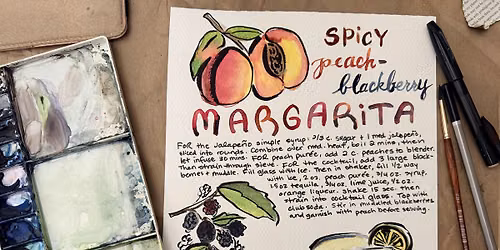 SPiCY
peach-
blackberry
MARGARiTA
FOR the Jalapeño simple syrup: 2/3 c. sugar + 1 med. jalapeño,
sliced into rounds. Combine over med. heat, boil 2 mins, then
let infuse 30 mins. FOR peach purée, add 2 c. peaches to blender.
Then strain through sieve. FOR the cocktail, add 3 large black-
berries + muddle. Fill glass with ice. Then in shaker, fill 1/2 way
with ice, 2 oz. peach purée, 3/4 oz. syrup,
1.5 oz tequila, 3/4 oz. lime juice, 1/2 oz.
orange liqueur. Shake 15 sec. then
strain into cocktail glass. Top with
club soda. Stir in muddled blackberries
and garnish with peach before serving.